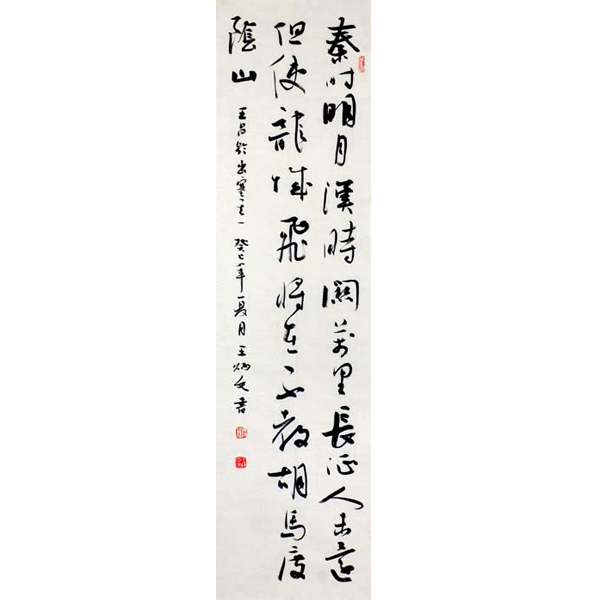 秦时明月漢時関萬里長征人未還
但使龍城飛将在不教胡馬度
陰山
王昌齡出塞之一 癸巳年夏月 王炳文書